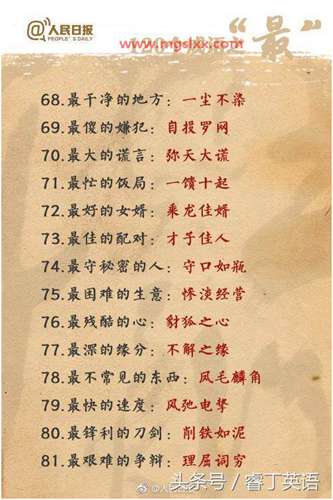 @人民日报
PEOPLE'S DAILY
www.mgslxx.com
“最”
68.最干净的地方：一尘不染
69.最傻的嫌犯：自投罗网
70.最大的谎言：弥天大谎
71.最忙的饭局：一馈十起
72.最好的女婿：乘龙佳婿
73.最佳的配对：才子佳人
74.最守秘密的人：守口如瓶
75.最困难的生意：惨淡经营
76.最残酷的心：豺狐之心
77.最深的缘分：不解之缘
78.最不常见的东西：凤毛麟角
79.最快的速度：风驰电掣
80.最锋利的刀剑：削铁如泥
81.最艰难的争辩：理屈词穷
@人民日报
头条号 / 睿丁英语